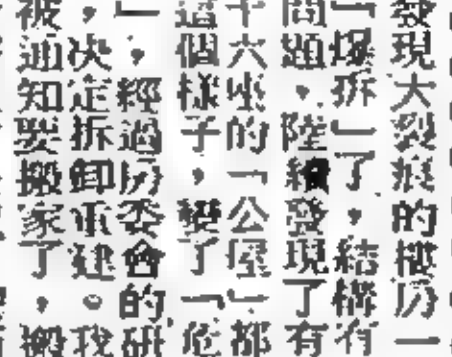 發現大裂痕的樓房一
「爆拆」了，結構有
問題，陸續發現了有
十六座的「公屋」都
這個樣子，變了「危
」，經過房委會的研
決定拆卸重建。我
被通知要搬家了，搬